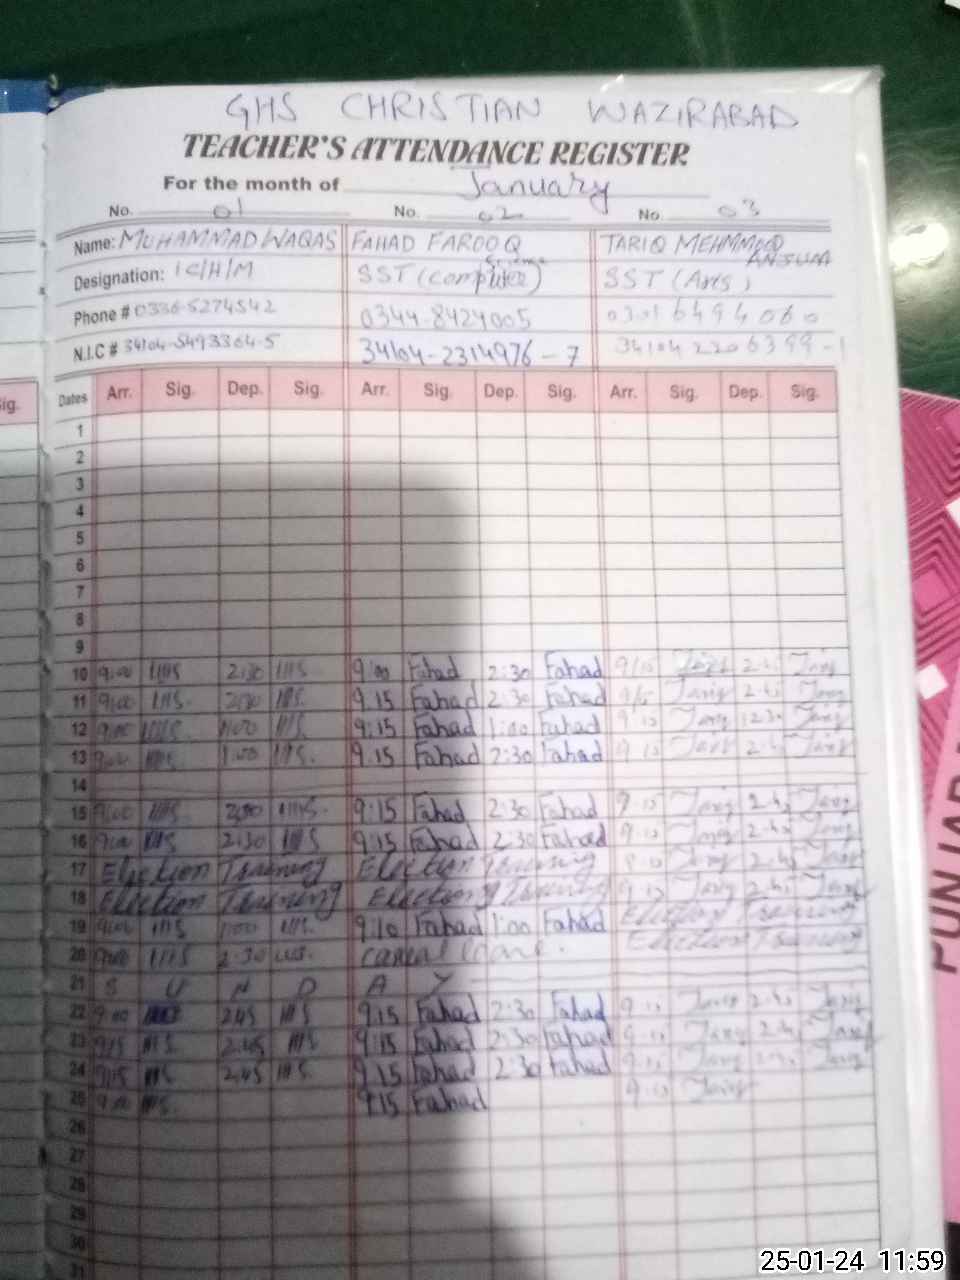 GHS CHRISTIAN WAZIRABAD
TEACHER'S ATTENDANCE REGISTER
For the month of January
No. 01 No. 02 No 03
Name: MUHAMMAD WAQAS FAHAD FAROOQ TARIQ MEHMOOD ANJUM
Designation: IC/H/M SST (Computer Science) SST (Arts)
Phone # 0336-5274542 0344-8424005 03016494060
N.I.C # 34104-5493364-5 34104-2314976-7 34104 2206399-1
Sig. Dates Arr. Sig. Dep. Sig. Arr. Sig. Dep. Sig. Arr. Sig. Dep. Sig.
1
2
3
4
5
6
7
8
9
10 9:00 2:30 9:00 Fahad 2:30 Fahad 9/15 Tariq Tariq
11 9:00 2:30 9:15 Fahad 2:30 Fahad Tariq 2-45 Tariq
12 9:00 1:00 9:15 Fahad 1:00 Fahad 9-15 Tariq 12:30 Tariq
13 9:00 1:00 9:15 Fahad 2:30 Fahad 9-15 Tariq 2-45 Tariq
14
15 9:00 9:15 Fahad 2:30 Fahad 9-15 Tariq 2-45 Tariq
16 9:00 2:30 9:15 Fahad 2:30 Fahad 9-15 Tariq 2-45 Tariq
17 Election Training Election Training Tariq 2-45 Tariq
18 Election Training Election Training 9-15 Tariq 2-45 Tariq
19 9:00 1:00 9:10 Fahad 1:00 Fahad Election Training
20 9:00 2:30 casual leave. Election Training
21 S U N D A Y
22 9:00 2:45 9:15 Fahad 2:30 Fahad 9-15 Tariq 2-45 Tariq
23 9:15 2:45 9:15 Fahad 2:30 Fahad 9-15 Tariq 2-45 Tariq
24 9:15 2:45 9:15 Fahad 2:30 Fahad 9-15 Tariq Tariq
25 9:00 9:15 Fahad 9-15 Tariq
26
27
28
29
30
31
PUNJAB
25-01-24 11:59